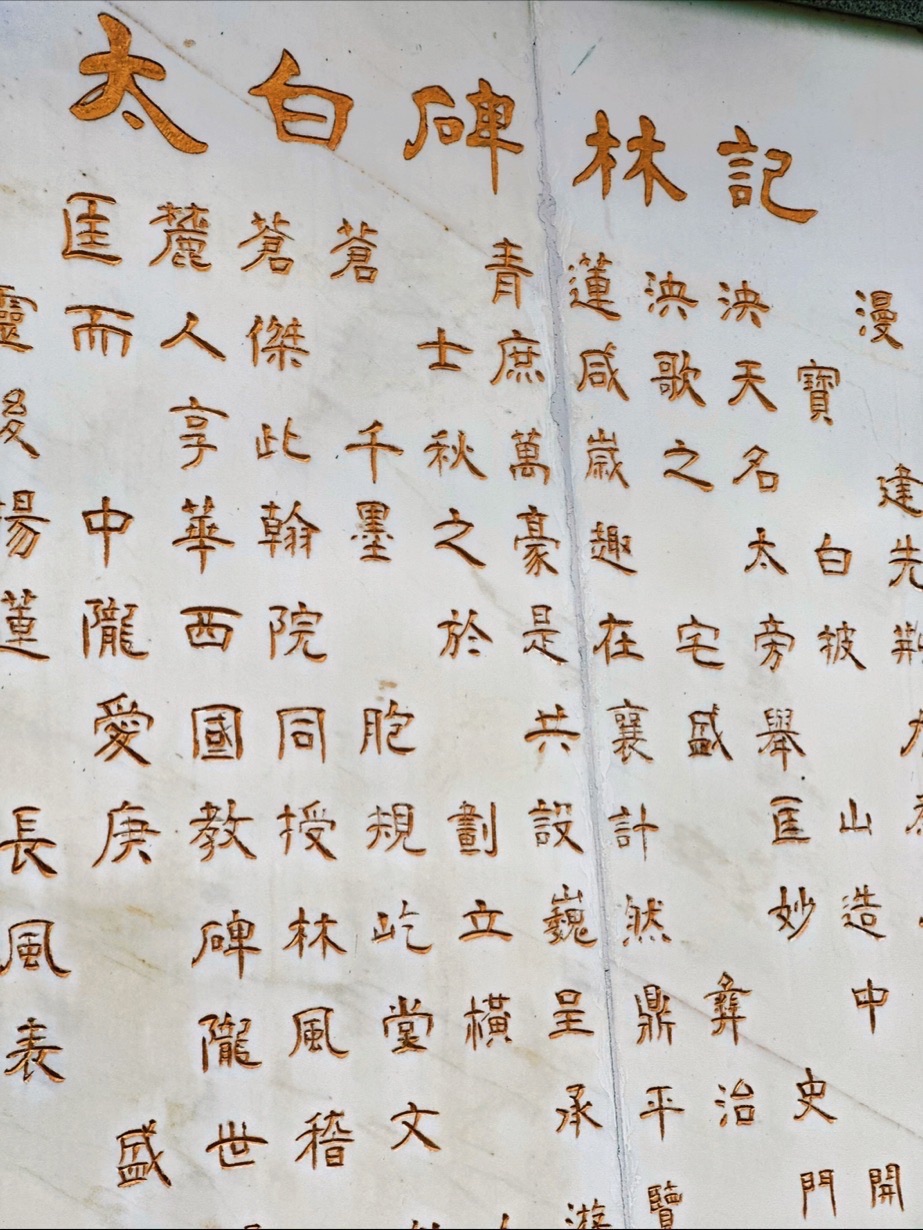 太白碑林記
匡麓蒼蒼 青蓮泱泱 漫
靈而人傑 士庶咸歌天寶
後 享此千秋萬歲之名 建
揚中華翰墨之豪趣 太白先
蓮隴西院 於是在宅旁披荊
愛國同胞 共襄盛舉
長庚教授規劃設計 匡山
風 碑林屹立巍然 妙造
表 隴風堂橫呈鼎彝 中
盛世稽文 承平治史
游覽 門開